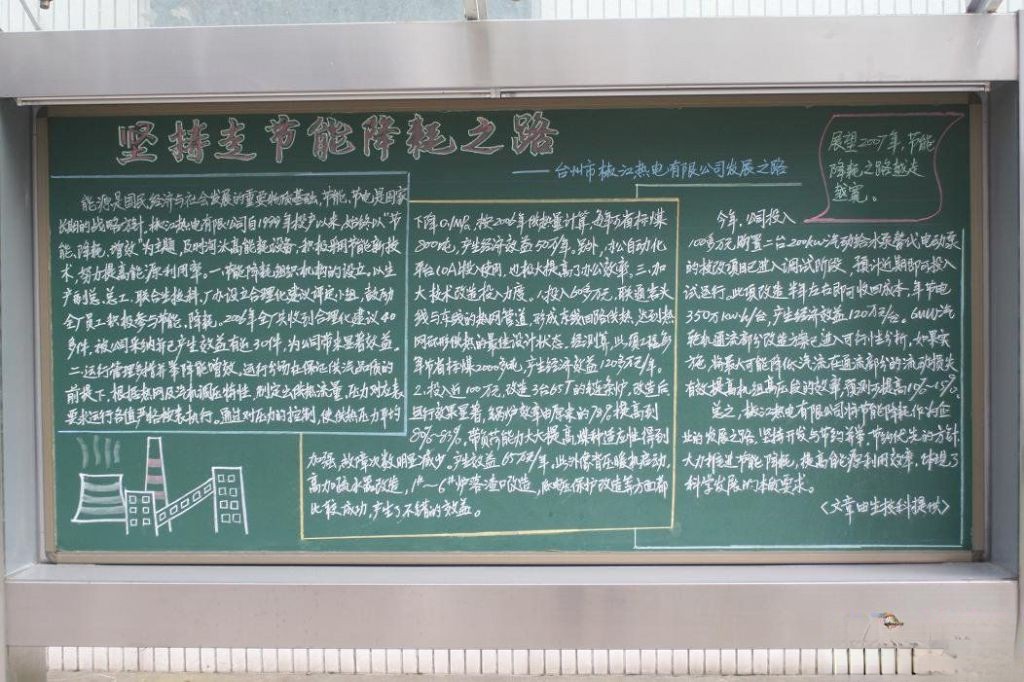 坚持走节能降耗之路
——台州市椒江热电有限公司发展之路
能源是国民经济与社会发展的重要物质基础,节能、节电是国家
长期的战略方针,椒江热电有限公司自1999年投产以来,始终以“节
能、降耗、增效”为主题,及时淘汰高能耗设备,积极采用节能新技
术,努力提高能源利用率。一、节能降耗组织机构的设立,以生
产副总、总工,联合生技科,厂办设立合理化建议评定小组,鼓励
全厂员工积极参与节能、降耗。2006年全厂共收到合理化建议40
多件,被公司采纳并已产生效益有近30件,为公司带来显著效益。
二、运行管理多管并举降能增效,运行分场在保证供汽品质的
前提下,根据热网及汽机调压特性,制定出供热流量,压力对应表
要求运行各值严格按表执行。通过对压力的控制,使供热压力平均
下降0.1MPa,按2006年供热量计算,每年节省标煤
200吨,产生经济效益50万年。另外,办公自动化
平台(OA)投入使用,也极大提高了办公效率。三、加
大技术改造投入力度。1、投入60多万元,联通岩头
线与东线的热网管道,形成东线回路供热,达到热
网环形供热的最佳设计状态。经测算,此项工程每
年节省标煤2000多吨,产生经济效益120多万/年。
2、投入近100万元,改造3台65T的链条炉,改造后
运行效果显著,锅炉效率由原来的78%提高到
80%-83%,带负荷能力大大提高,煤种适应性得到
加强,故障次数明显减少。产生效益65万/年,此外像背压暖机启动,
高加疏水器改造,1#~6#炉落渣口改造,低电压保护改造等方面都
比较成功,产生了不错的效益。
展望2007年,节能
降耗之路越走
越宽。
今年,公司投入
100多万元购置二台200kW汽动给水泵替代电动泵
的技改项目已进入调试阶段,预计近期即可投入
试运行。此项改造半年左右即可收回成本,年节电
3505kW·h/台,产生经济效益120万/台。6MW汽
轮机通流部分改造方案已进入可行性分析,如果实
施,将最大可能降低汽流在通流部分的流动损失
有效提高机组高压段的效率,预测可提高10%-15%。
总之,椒江热电有限公司将节能降耗作为企
业的发展之路,坚持开发与节约并举,节约优先的方针,
大力推进节能降耗,提高能源利用效率,体现了
科学发展的本质要求。
〈文章由生技科提供〉